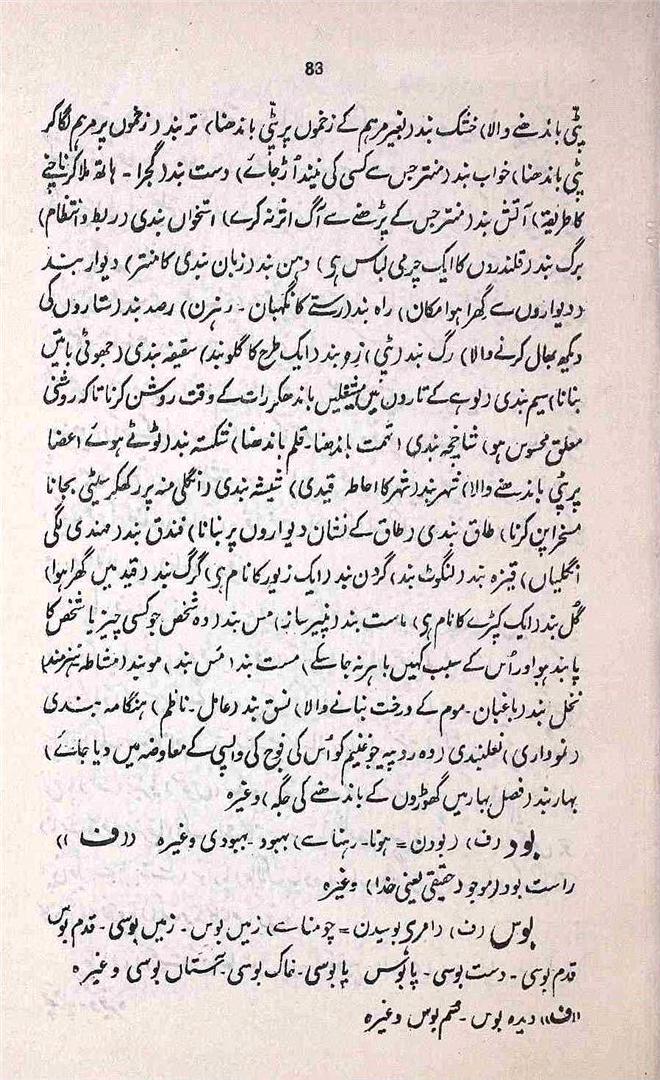 83
پٹی باندھنے والا) خشک بند (بغیر مرہم کے زخموں پر پٹی باندھنا) تر بند (زخموں پر مرہم لگا کر
پٹی باندھنا) خواب بند (منتر جس سے کسی کی نیند اُڑ جائے) دست بند (گجرا - ہاتھ ملا کر ناچنے
کا طریقہ) آتش بند (منتر جس کے پڑھنے سے آگ اثر نہ کرے) استخواں بندی (ربط و انتظام)
برگ بند (قلندروں کا ایک چرمی لباس ہی) دہن بند (زبان بندی کا منتر) دیوار بند
(دیواروں سے گھرا ہوا مکان) راہ بند (رستے کا نگہبان - رہزن) رصد بند (ستاروں کی
دیکھ بھال کرنے والا) رگ بند (پٹی) زہ بند (ایک طرح کا گلو بند) سقیفہ بندی (جھوٹی باتیں
بنانا) سیم بندی (لوہے کے تاروں میں مشعلیں باندھکر رات کے وقت روشن کرنا تاکہ روشنی
معلق محسوس ہو) شاخچہ بندی (تہمت باندھنا - قلم باندھنا) شکستہ بند (ٹوٹے ہوئے اعضا
پر پٹی باندھنے والا) شہر بند (شہر کا احاطہ قیدی) شیشہ بندی (انگلی منہ پر رکھکر سیٹی بجانا
مسخرا پن کرنا) طاق بندی (طاق کے نشان دیواروں پر بنانا) فندق بند (مہندی لگی
انگلیاں) قیزہ بند (لنگوٹ بند) گردن بند (ایک زیور کا نام ہی) گرگ بند (قید میں گھرا ہوا)
گُل بند (ایک کپڑے کا نام ہی) ماست بند (پنیر ساز) مس بند (وہ شخص جو کسی چیز یا شخص کا
پابند ہو اور اُس کے سبب کہیں باہر نہ جا سکے) مست بند (مس بند) مو بند (مشاطہ
نخل بند (باغبان - موم کے درخت بنانے والا) نسق بند (عامل - ناظم) ہنگامہ بندی
(نوداری) نعلبندی (وہ روپیہ جو غنیم کو اُس کی فوج کی واپسی کے معاوضہ میں دیا جائے)
بہار بند (فصل بہار میں گھوڑوں کے باندھنے کی جگہ) وغیرہ
بود (ف) (بودن = ہونا - رہنا سے) بہبود - بہبودی وغیرہ ((ف))
راست بود (موجود حقیقی یعنی خدا) وغیرہ
بوس (ف) (امری بوسیدن = چومنا سے) زمیں بوس - زمیں بوسی - قدم بوس
قدم بوسی - دست بوسی - پابُوس پا بوسی - خاک بوسی - آستاں بوسی وغیرہ
((ف)) دیدہ بوس - سُم بوس وغیرہ